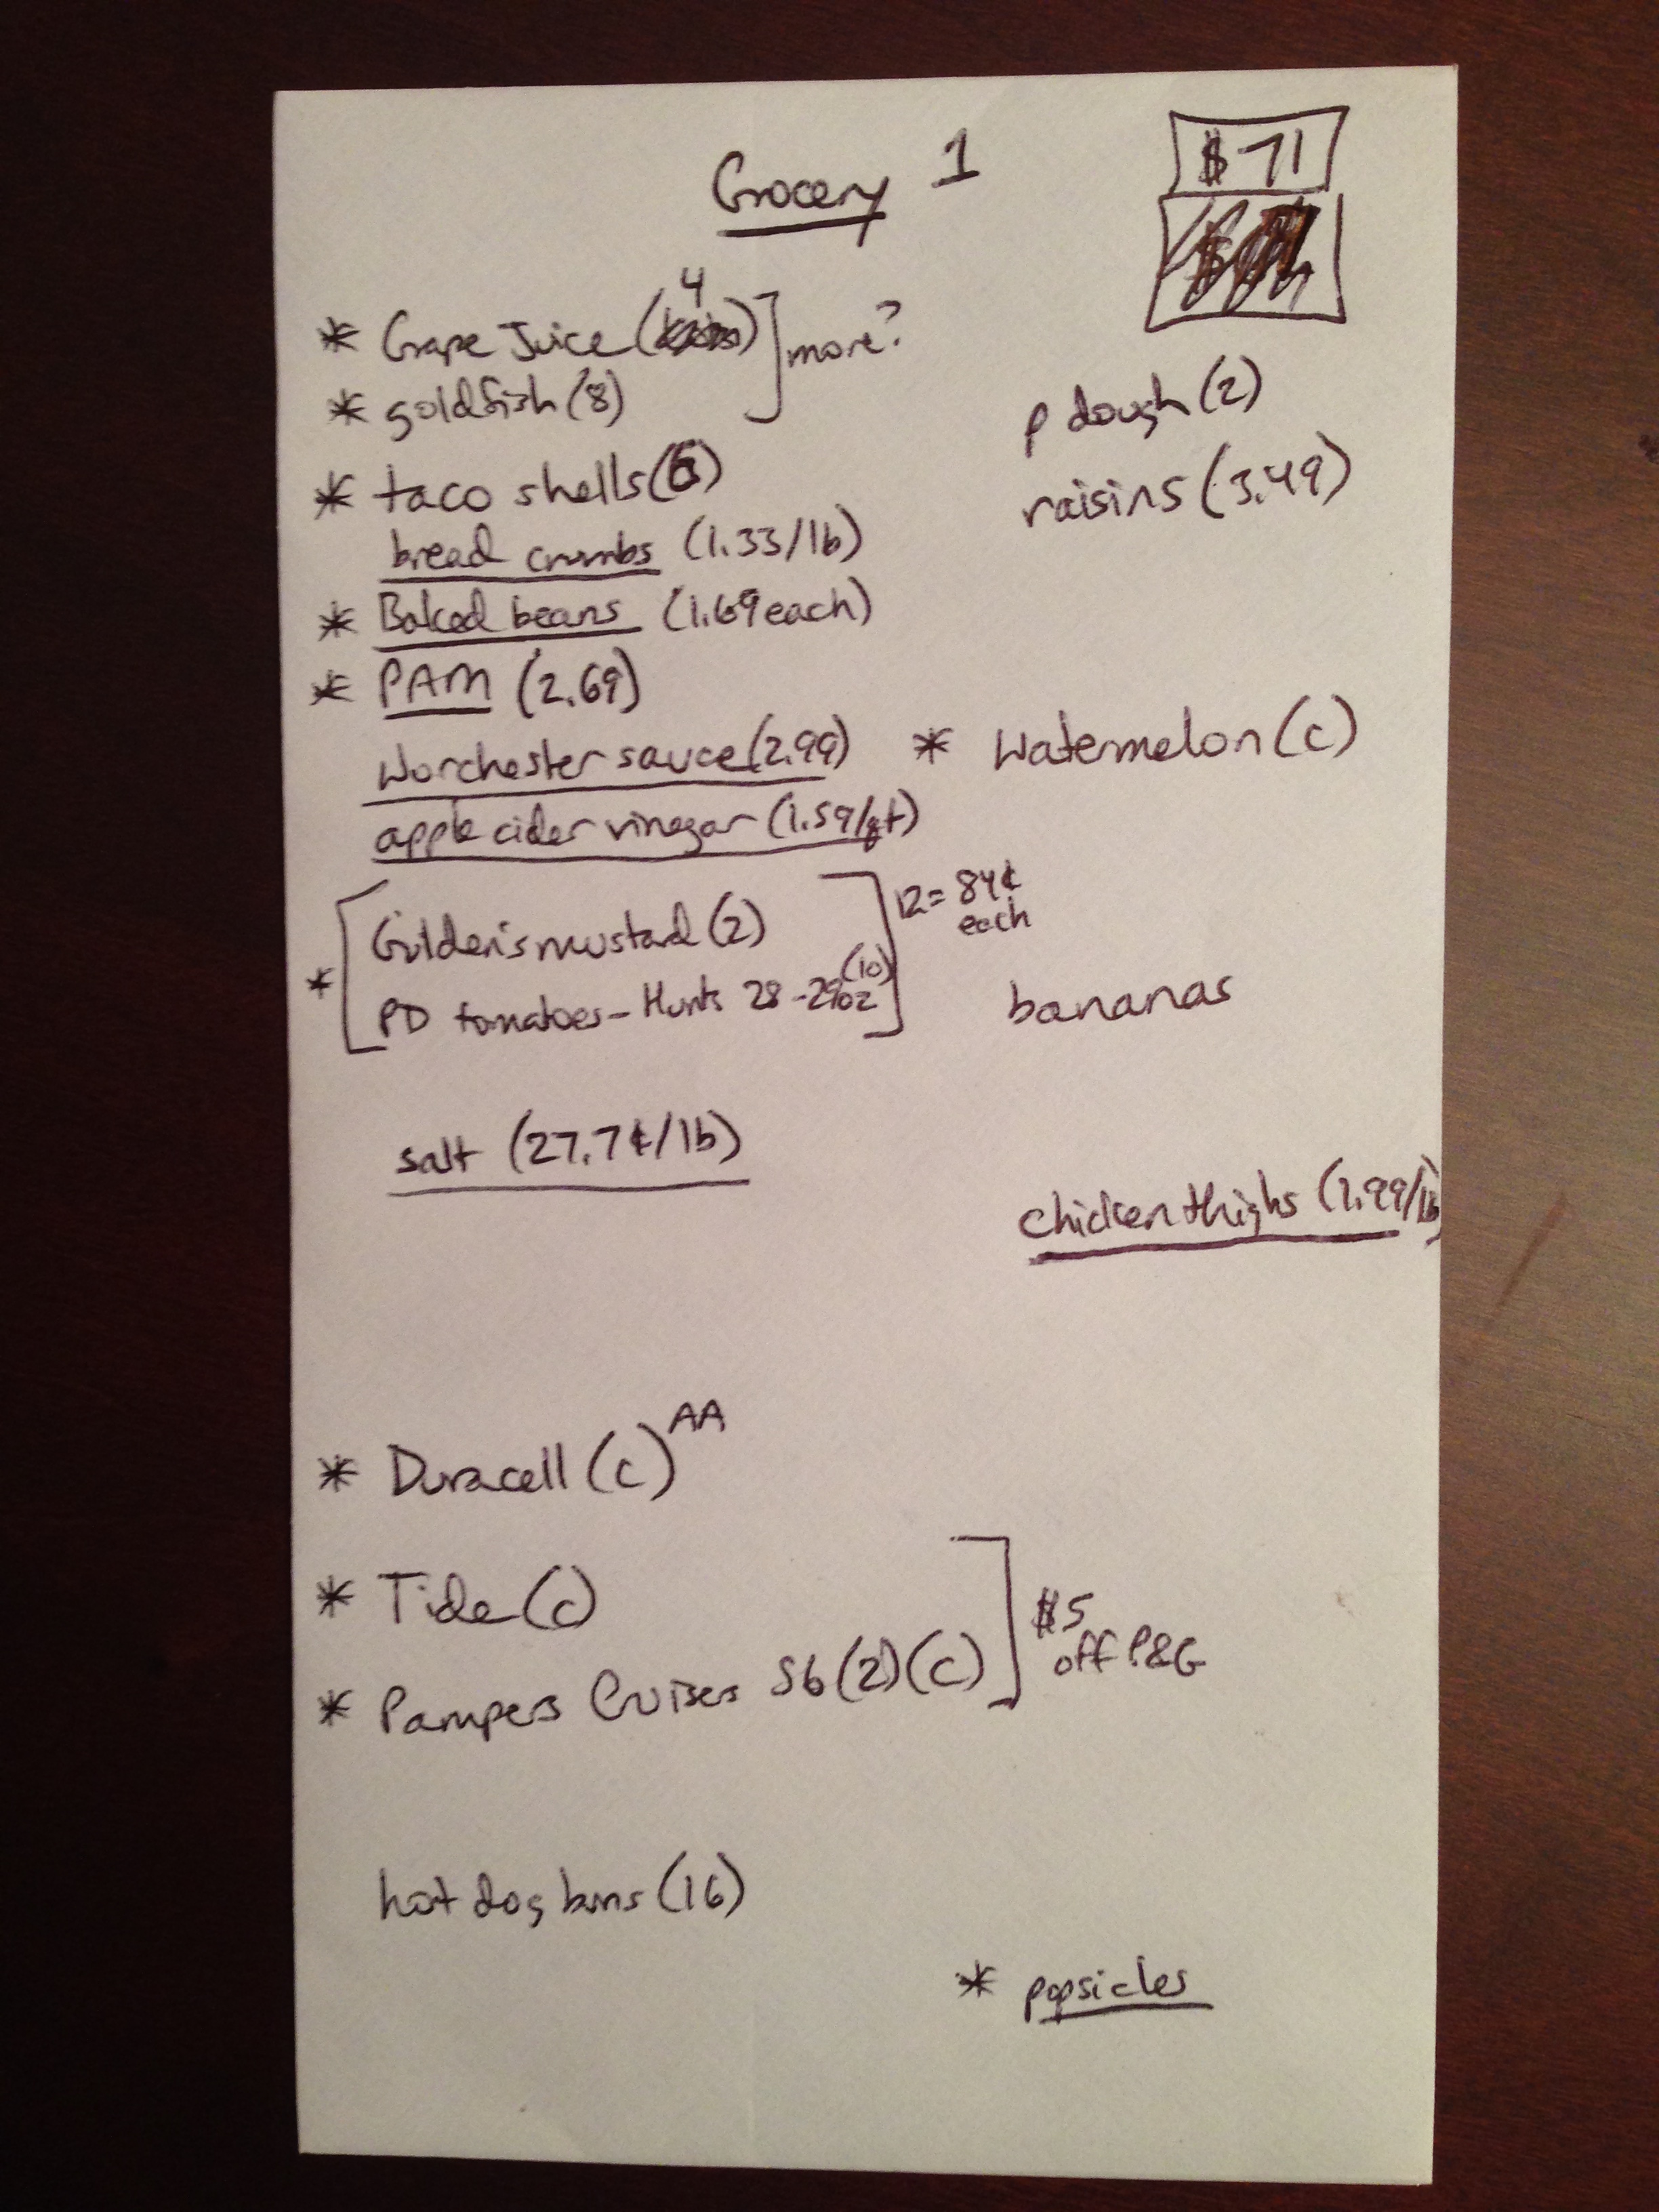 Grocery 1
$71
4
* Grape Juice ( ) ] more?
* goldfish (8)
p dough (2)
* taco shells (6)
raisins (3.49)
bread crumbs (1.33/lb)
* Baked beans (1.69 each)
* PAM (2.69)
Worchester sauce (2.99)
* Watermelon (c)
apple cider vinegar (1.59/qt)
* [ Gulden's mustard (2) ] 12 = 84¢ each
PD tomatoes - Hunts 28-29oz (10)
bananas
salt (27.7¢/lb)
chicken thighs (1.99/lb)
* Duracell (c) AA
* Tide (c)
* Pampers Cruisers S6 (2) (c) ] $5 off P&G
hot dog buns (16)
* popsicles